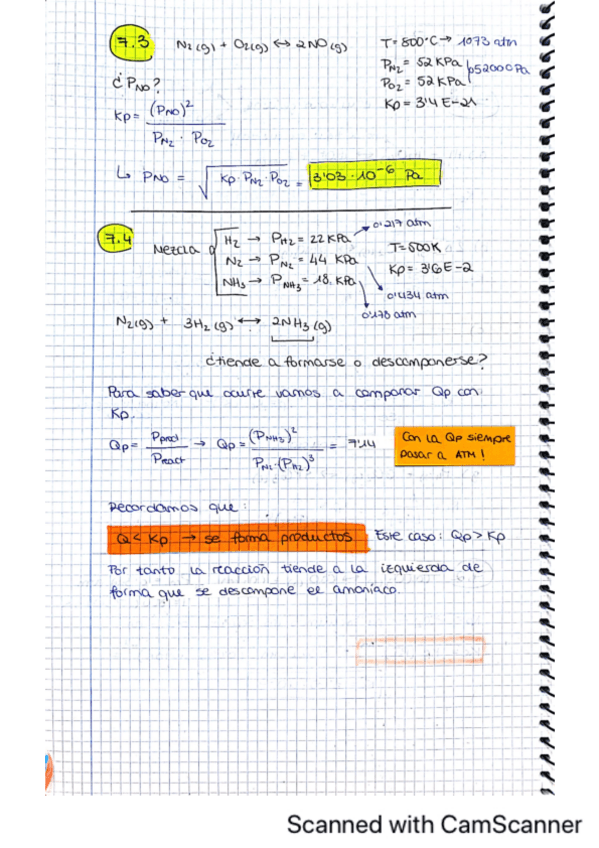 7.3 N₂(g) + O₂(g) ↔ 2NO(g) T = 800°C → 1073 atm
P_N₂ = 52 KPa
¿P_NO? P_O₂ = 52 KPa 52000 Pa
Kp = (P_NO)² / P_N₂ · P_O₂ Kp = 3'4 E-21
↳ P_NO = √(Kp · P_N₂ · P_O₂) = 3'03 · 10⁻⁶ Pa
7.4 Mezcla H₂ → P_H₂ = 22 KPa → 0'217 atm
N₂ → P_N₂ = 44 KPa T = 500K
NH₃ → P_NH₃ = 18 KPa Kp = 3'6 E-2
0'434 atm
0'178 atm
N₂(g) + 3H₂(g) ↔ 2NH₃(g)
¿tiende a formarse o descomponerse?
Para saber que ocurre vamos a comparar Qp con
Kp.
Qp = P prod / P react → Qp = (P_NH₃)² / P_N₂ · (P_H₂)³ = 7'14
Con la Qp siempre
pasar a ATM!
Recordamos que:
Q < Kp → se forma productos Este caso: Qp > Kp
Por tanto la reacción tiende a la izquierda de
forma que se descompone el amoniaco.
Scanned with CamScanner